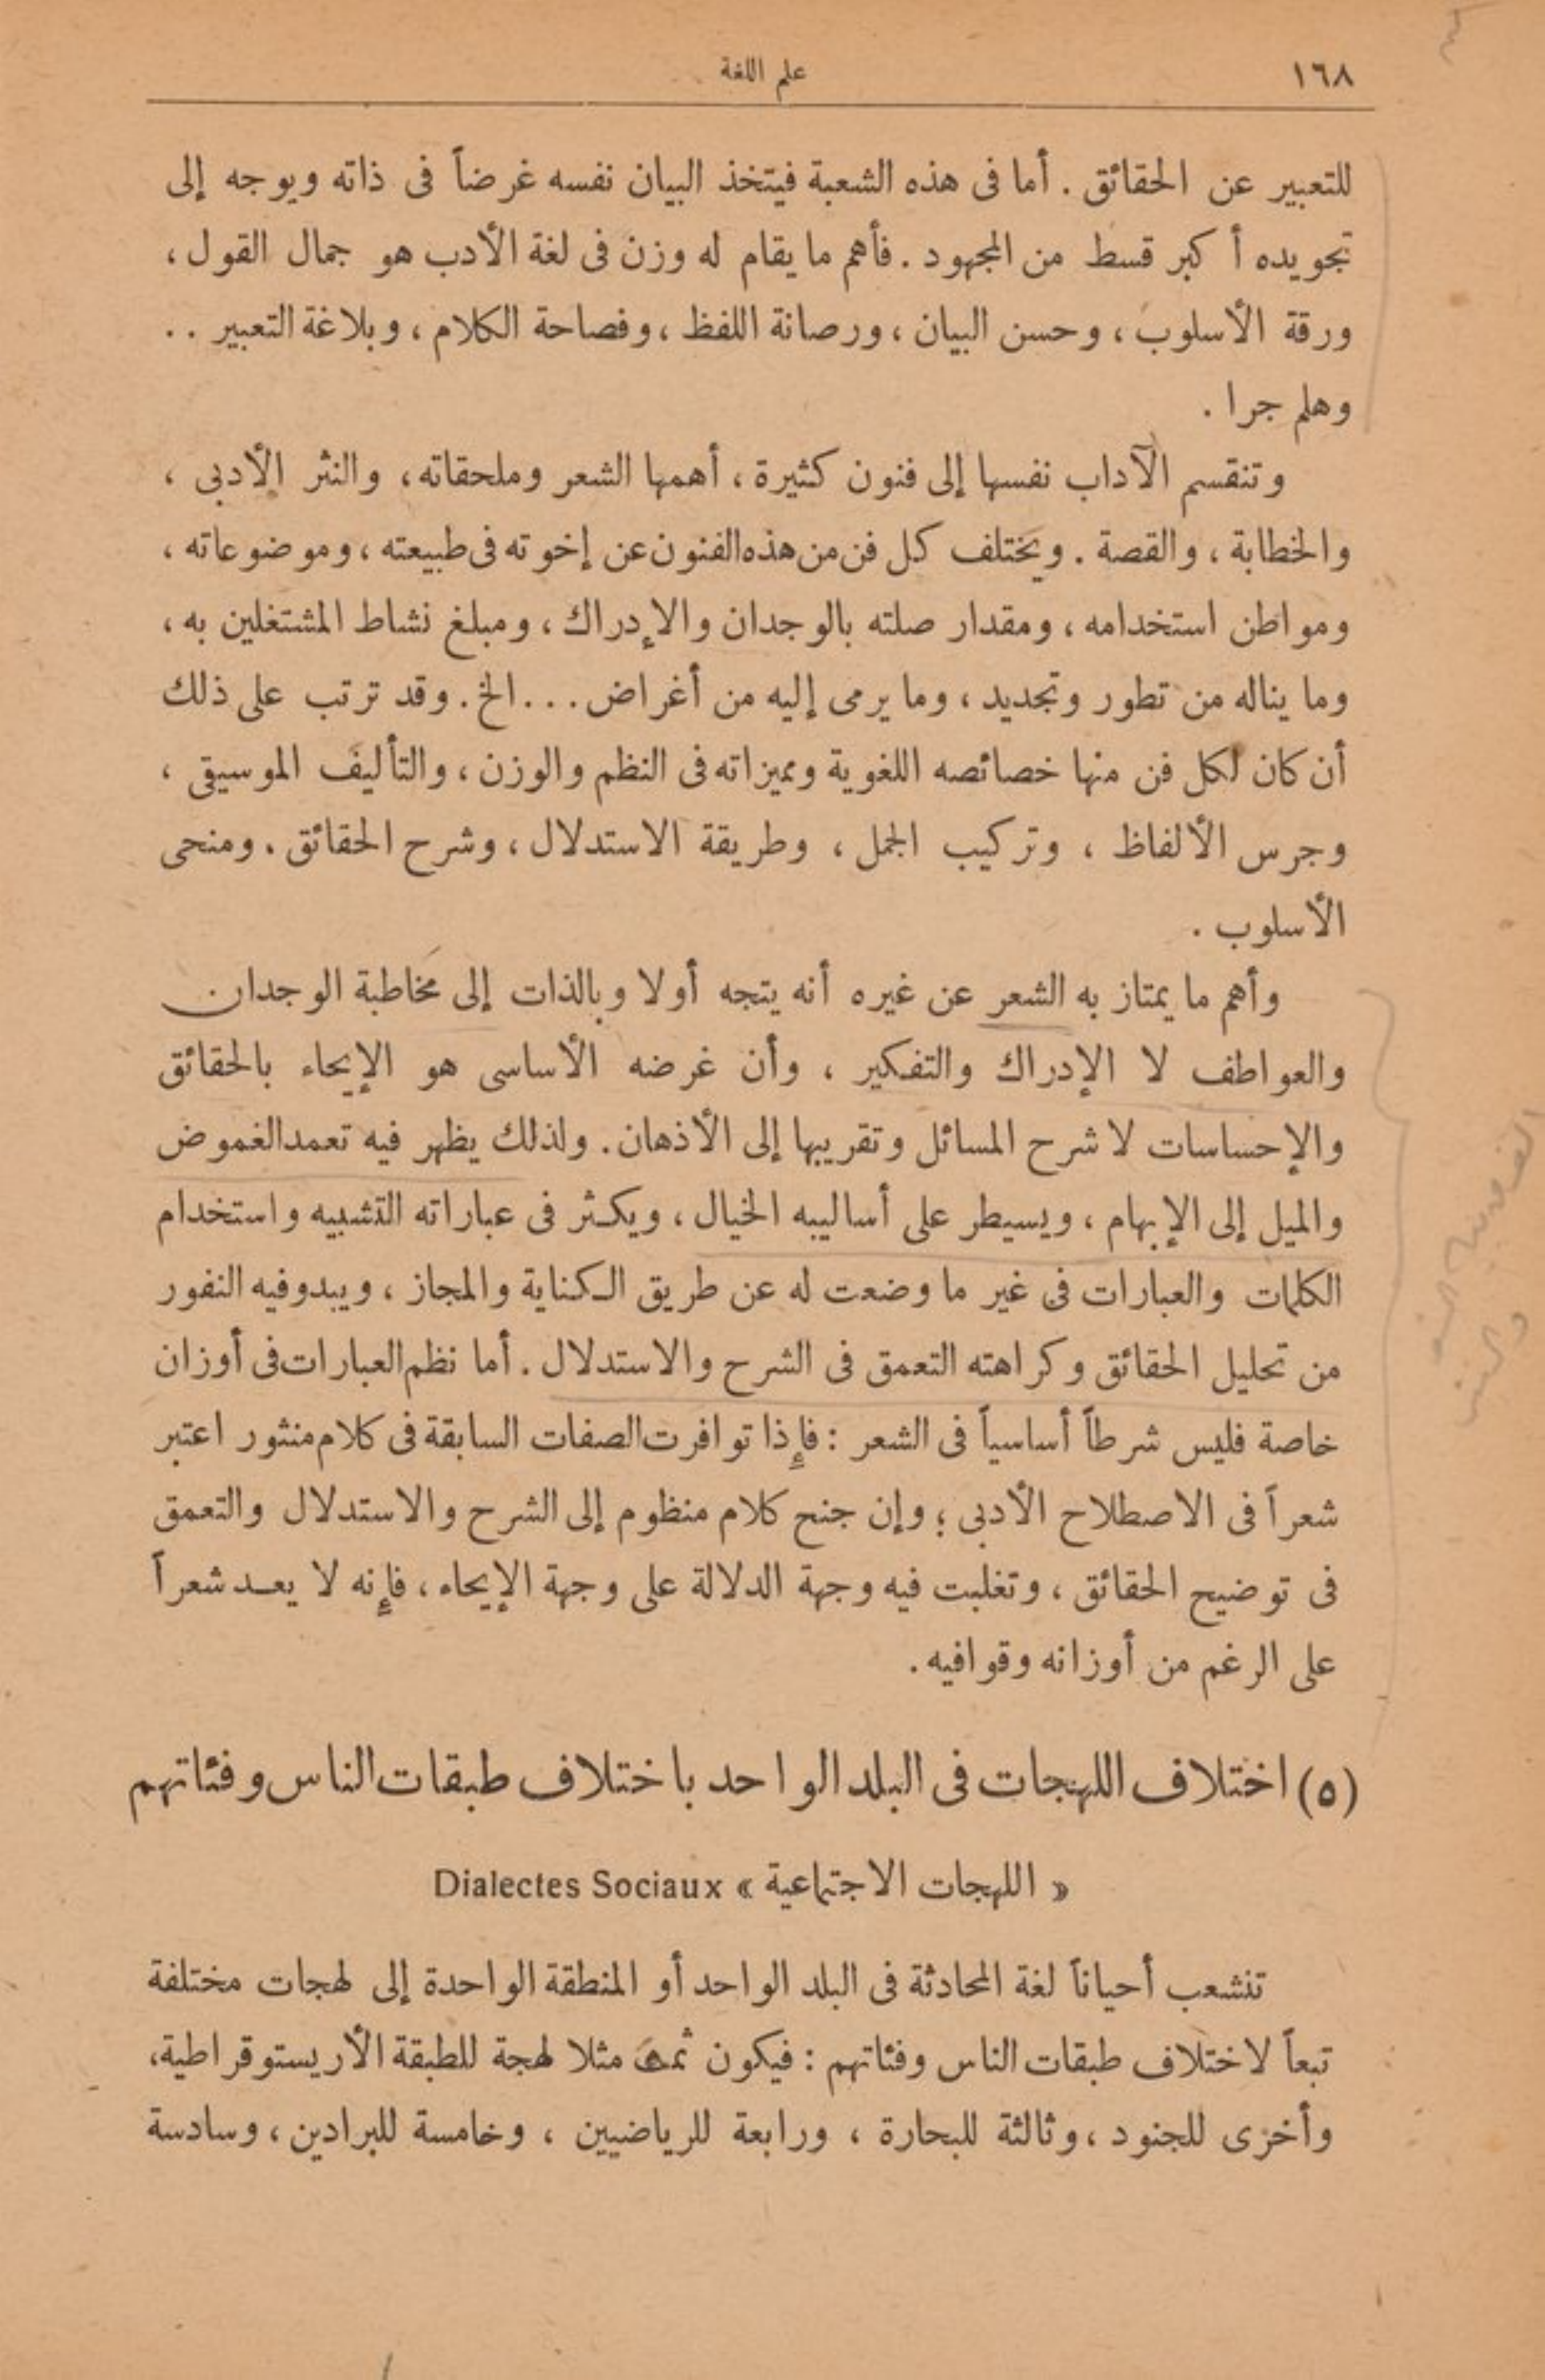 ١٦٨
علم اللغة
للتعبير عن الحقائق . أما فى هذه الشعبة فيتخذ البيان نفسه غرضاً فى ذاته ويوجه إلى
تجويده أكبر قسط من المجهود . فأهم ما يقام له وزن فى لغة الأدب هو جمال القول ،
ورقة الأسلوب ، وحسن البيان ، ورصانة اللفظ ، وفصاحة الكلام ، وبلاغة التعبير . .
وهلم جرا .
وتنقسم الآداب نفسها إلى فنون كثيرة ، أهمها الشعر وملحقاته ، والنثر الأدبى ،
والخطابة ، والقصة . ويختلف كل فن من هذه الفنون عن إخوته فى طبيعته ، وموضوعاته ،
ومواطن استخدامه ، ومقدار صلته بالوجدان والإدراك ، ومبلغ نشاط المشتغلين به ،
وما يناله من تطور وتجديد ، وما يرمى إليه من أغراض . . . الخ . وقد ترتب على ذلك
أن كان لكل فن منها خصائصه اللغوية ومميزاته فى النظم والوزن ، والتأليف الموسيقى ،
وجرس الألفاظ ، وتركيب الجمل ، وطريقة الاستدلال ، وشرح الحقائق . ومنحى
الأسلوب .
وأهم ما يمتاز به الشعر عن غيره أنه يتجه أولا وبالذات إلى مخاطبة الوجدان
والعواطف لا الإدراك والتفكير ، وأن غرضه الأساسى هو الإيحاء بالحقائق
والإحساسات لا شرح المسائل وتقريبها إلى الأذهان . ولذلك يظهر فيه تعمد الغموض
والميل إلى الإبهام ، ويسيطر على أساليبه الخيال ، ويكثر فى عباراته التشبيه واستخدام
الكلمات والعبارات فى غير ما وضعت له عن طريق الكناية والمجاز ، ويبدو فيه النفور
من تحليل الحقائق وكراهته التعمق فى الشرح والاستدلال . أما نظم العبارات فى أوزان
خاصة فليس شرطاً أساسياً فى الشعر : فإذا توافرت الصفات السابقة فى كلام منثور اعتبر
شعراً فى الاصطلاح الأدبى ؛ وإن جنح كلام منظوم إلى الشرح والاستدلال والتعمق
فى توضيح الحقائق ، وتغلبت فيه وجهة الدلالة على وجهة الإيحاء ، فإنه لا يعد شعراً
على الرغم من أوزانه وقوافيه .
(٥) اختلاف اللهجات فى البلد الواحد باختلاف طبقات الناس وفئاتهم
« اللهجات الاجتماعية » Dialectes Sociaux
تنشعب أحياناً لغة المحادثة فى البلد الواحد أو المنطقة الواحدة إلى لهجات مختلفة
تبعاً لاختلاف طبقات الناس وفئاتهم : فيكون ثمة مثلا لهجة للطبقة الأريستوقراطية،
وأخرى للجنود ، وثالثة للبحارة ، ورابعة للرياضيين ، وخامسة للبرادين ، وسادسة